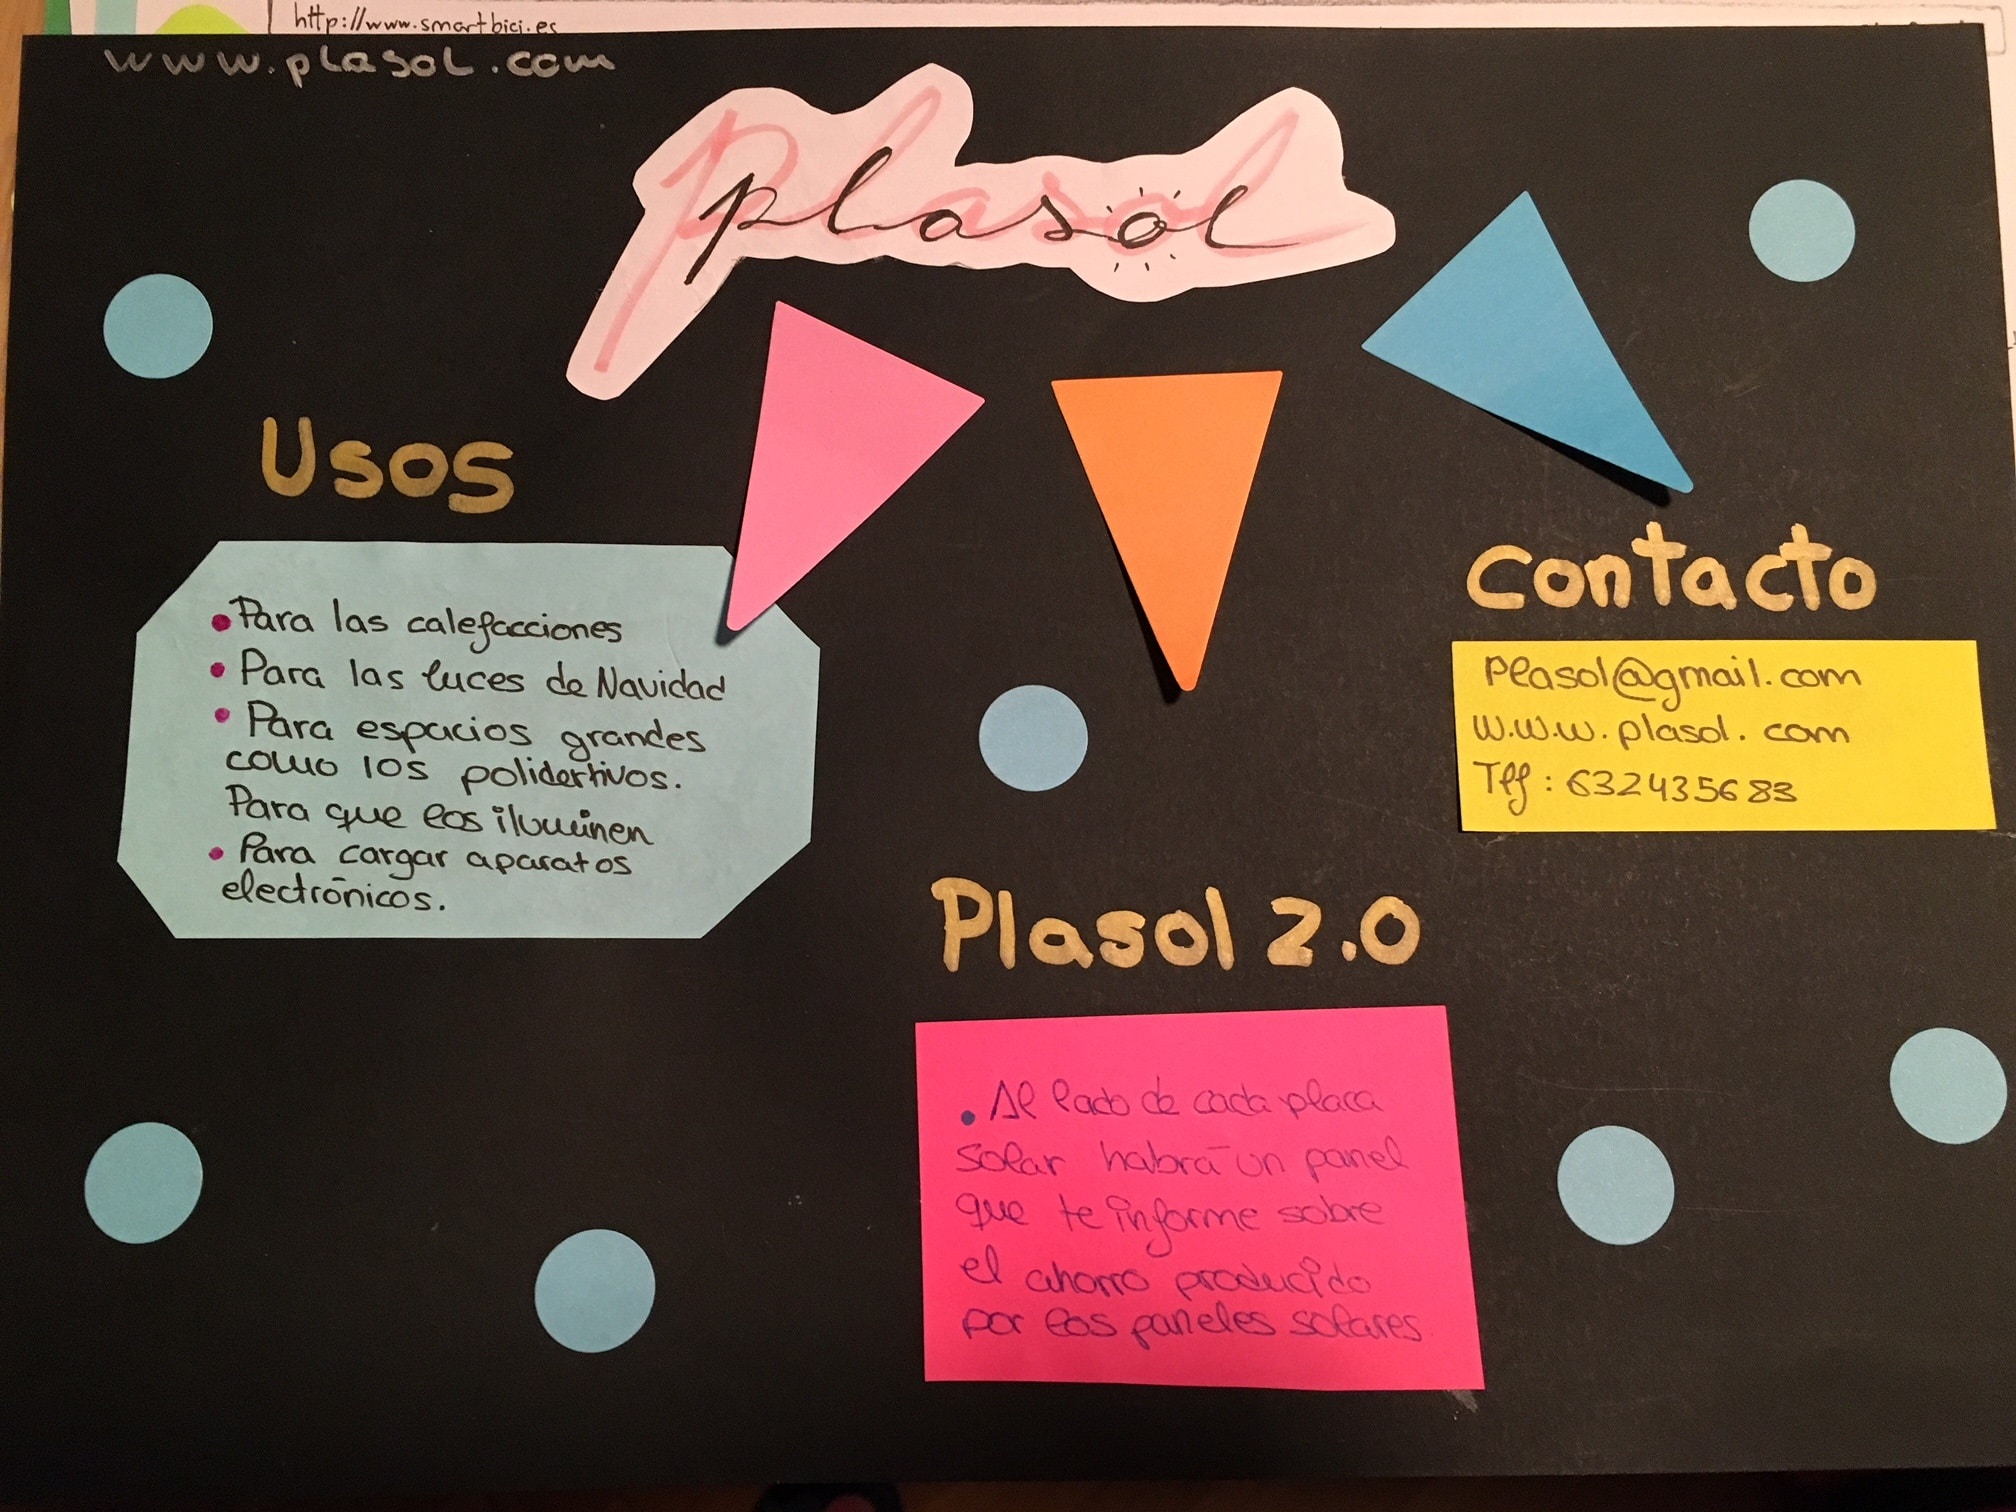 http://www.smartbici.es
www.plasol.com
plasol
Usos
• Para las calefacciones
• Para las luces de Navidad
• Para espacios grandes
como los polidertivos.
Para que los iluminen
• Para cargar aparatos
electrónicos.
Contacto
Plasol@gmail.com
w.w.w.plasol.com
Tlf: 632435683
Plasol 2.0
• Al lado de cada placa
solar habrá un panel
que te informe sobre
el ahorro producido
por los paneles solares